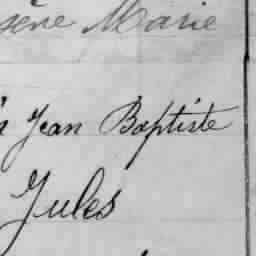 Marie
Jean Baptiste
Jules